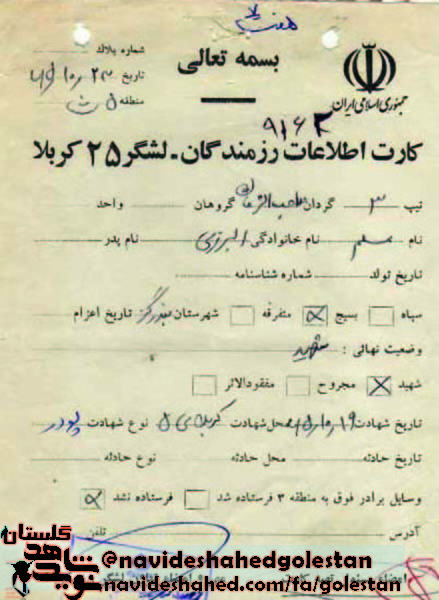 بسمه تعالی
جمهوری اسلامی ایران
شماره پلاک
تاریخ ۲۳ر۱۰ر۶۵
منطقه
۹۱۶۳
کارت اطلاعات رزمندگان - لشگر ۲۵ کربلا
تیپ ۳ گردان صاحب الزمان گروهان واحد
نام نام خانوادگی البرزی نام پدر
تاریخ تولد شماره شناسنامه
سپاه بسیج متفرقه شهرستان بندرگز تاریخ اعزام
وضعیت نهائی : شهید
شهید مجروح مفقودالاثر
تاریخ شهادت ۱۹ر۱۰ر۶۵ محل شهادت کربلای ۵ نوع شهادت
تاریخ حادثه محل حادثه نوع حادثه
وسایل برادر فوق به منطقه ۳ فرستاده شد فرستاده نشد
آدرس تلفن
نوید شاهد گلستان
@navideshahedgolestan
navideshahed.com/fa/golestan